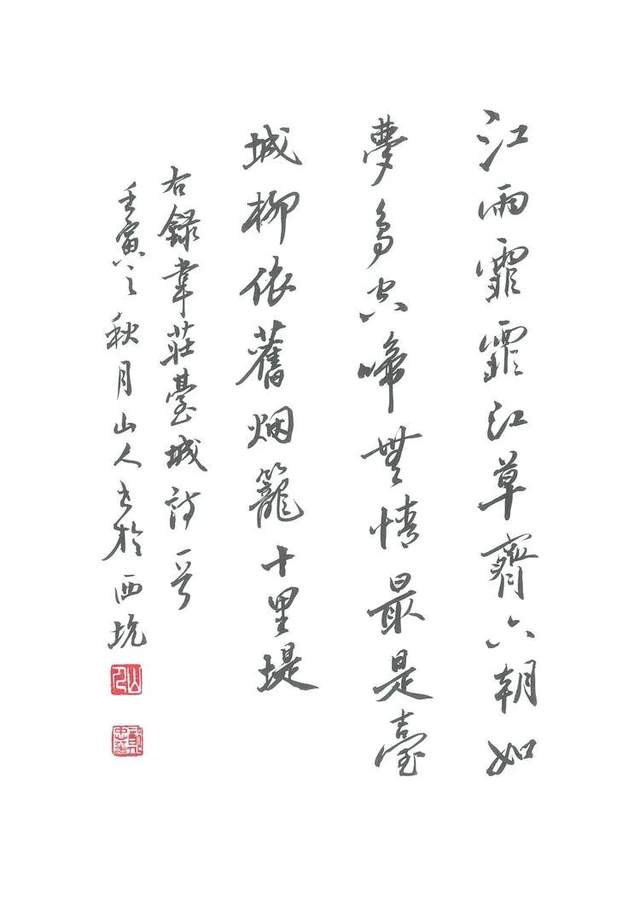 江雨霏霏江草齊六朝如
夢鳥空啼無情最是臺
城柳依舊烟籠十里堤
右錄韋莊臺城詩一首
壬寅之秋月山人書於西坑
山人